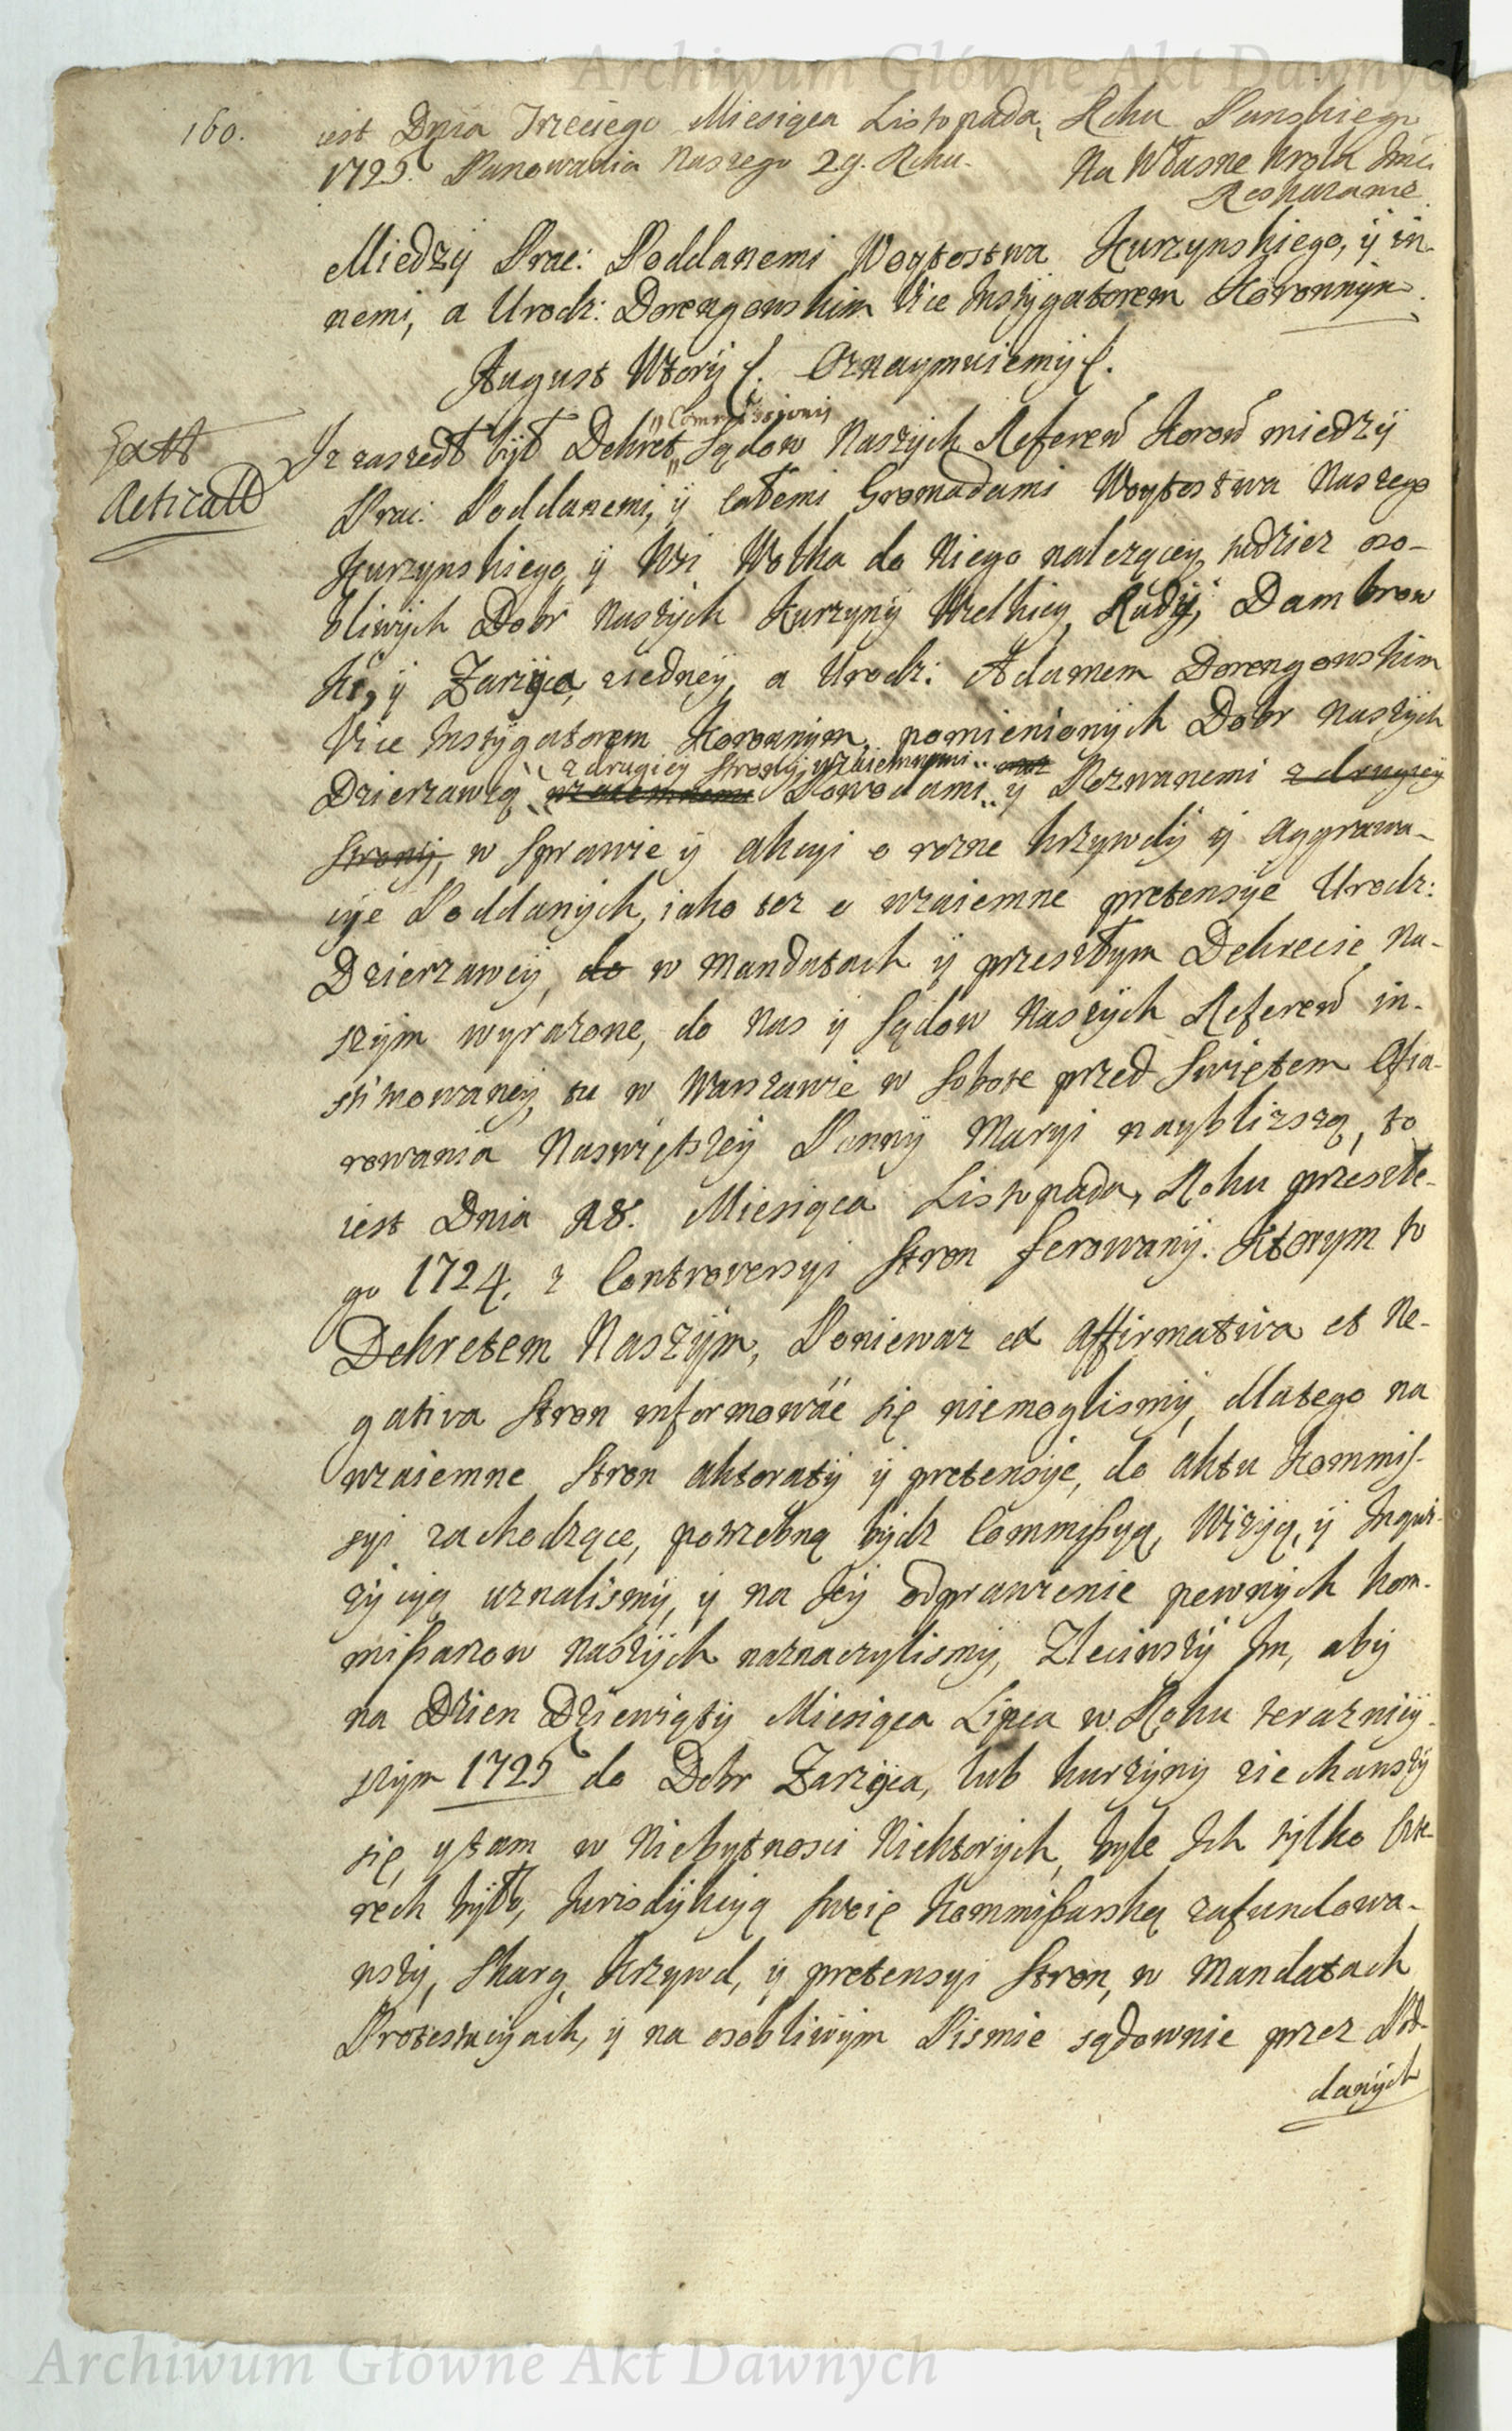 Archiwum Główne Akt Dawnych
160.
iest Dnia Trzeciego Miesiąca Listopada, Roku Panskiego
1725. Panowania Naszego 29. Roku. Na Własne Krola Jmci
Roskazanie
Miedzy Prac: Poddanemi Woytostwa Kurzynskiego, y in-
nemi, a Urodz: Dorengowskim Vice Instygatorem Koronnym.
August Wtory Oznaymuiemy
Extt
Acticatt
Jz zaszedł był Dekret, Sądow Naszych Referen Koron miedzy
Commissionis
Prac: Poddanemi, y całemi Gromadami Woytostwa Naszego
Kurzynskiego y Wsi Wolka do Niego nalezącey, tudziez oso-
bliwych Dobr Naszych Kurzyny Wielkiey, Rudy, Dambrow
ki, y Zarzyca, ziedney, a Urodz: Adamem Dorengowskim
Vice Instygatorem Koronnym, pomienionych Dobr Naszych
z drugiey Strony, wzaiemnymi
Dzierzawcą Powodami y Pozwanemi z drugiey
Strony, w Sprawie y akcyi o rozne krzywdy y aggrawa-
cye Poddanych, iako tez o wzaiemne pretensye Urodz:
Dzierzawcy, do w Mandatach y przeszłym Dekrecie Na-
szym wyrazone, do Nas y Sądow Naszych Referen in-
stimowaney, tu w Warszawie w Sobote przed Swiętem Ofia-
rowania Naswiętszey Panny Maryi naybliszszą, to
iest Dnia 18. Miesiąca Listopada, Roku przeszłe-
go 1724. z Controversyi Stron ferowany. Ktorym to
Dekretem Naszym, Poniewaz ex affirmativa et Ne-
gativa Stron informować się niemoglismy, dlatego na
wzaiemne Stron aktoraty y pretensye, do aktu Kommis-
syi zachodzące, potrzebną bydz Commissyą, Wizyą, y Inqwi-
zycyą uznalismy, y na Jey odprawienie pewnych Kom-
missarzow Naszych naznaczylismy, Zleciwszy Im, aby
na Dzien Dziewiąty Miesiąca Lipca w Roku terazniey-
szym 1725 do Dobr Zarzyca, lub Kurzyny ziechawszy
się, y tam w Niebytnosci Niektorych, byle Ich tylko czte-
rech było, Jurisdykcyą swoię Kommissarską zafundowa-
wszy, Skarg, Krzywd, y pretensyi Stron, w Mandatach
Protestacyach, y na osobliwym Pismie sądownie przez Pod-
danych
Archiwum Główne Akt Dawnych